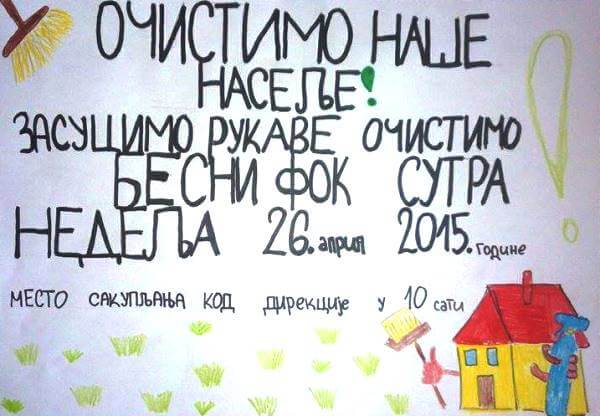 ОЧИСТИМО НАШЕ
НАСЕЉЕ!
ЗАСУЦИМО РУКАВЕ ОЧИСТИМО
БЕСНИ ФОК СУТРА
НЕДЕЉА 26. април 2015. године
МЕСТО САКУПЉАЊА КОД ДИРЕКЦИЈЕ У 10 сати